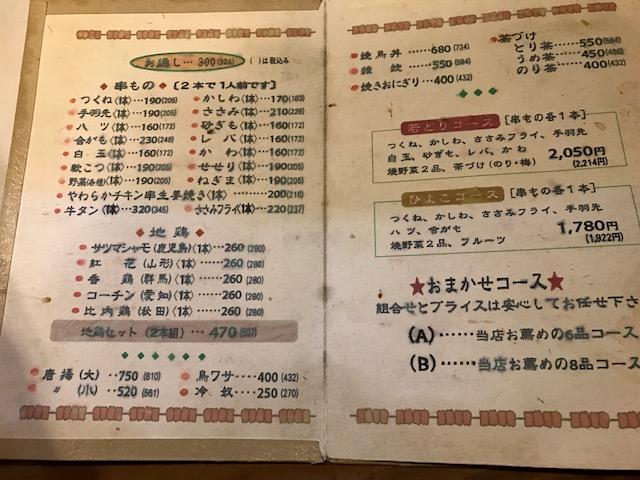 お通し… 300(324) ( )は税込み
串もの [2本で1人前です]
つくね〈1本〉…190(205)
手羽先〈1本〉…190(205)
ハツ〈1本〉…160(172)
合がも〈1本〉…230(248)
白玉〈1本〉…160(172)
軟こつ〈1本〉…190(205)
野菜(各種)〈1本〉…190(205)
かしわ〈1本〉…170(183)
ささみ〈1本〉…210(226)
砂ぎも〈1本〉…160(172)
レバ〈1本〉…160(172)
かわ〈1本〉…160(172)
せせり〈1本〉…190(205)
ねぎま〈1本〉…190(205)
やわらかチキン串生姜焼き〈1本〉……200(216)
牛タン〈1本〉…320(345)
ささみフライ〈1本〉…220(237)
地鶏
サツマシャモ(鹿児島)〈1本〉…260(280)
紅花(山形)〈1本〉……260(280)
香鶏(群馬)〈1本〉……260(280)
コーチン(愛知)〈1本〉……260(280)
比内鶏(秋田)〈1本〉……260(280)
地鶏セット(2本組)… 470(507)
唐揚(大)…750(810)
〃(小)…520(561)
鳥ワサ……400(432)
冷奴……250(270)
焼鳥丼……680(734)
雑炊……550(594)
焼きおにぎり…400(432)
茶づけ
とり茶……550(594)
うめ茶……450(486)
のり茶……400(432)
若どりコース [串もの各1本]
つくね、かしわ、ささみフライ、手羽先
白玉、砂ぎも、レバ、かわ
焼野菜2品、茶づけ(のり・梅)
2,050円
(2,214円)
ひよこコース [串もの各1本]
つくね、かしわ、ささみフライ、手羽先
ハツ、合がも
焼野菜2品、フルーツ
1,780円
(1,922円)
★おまかせコース★
組合せとプライスは安心してお任せ下さ
(A)……当店お薦めの6品コース
(B)……当店お薦めの8品コース